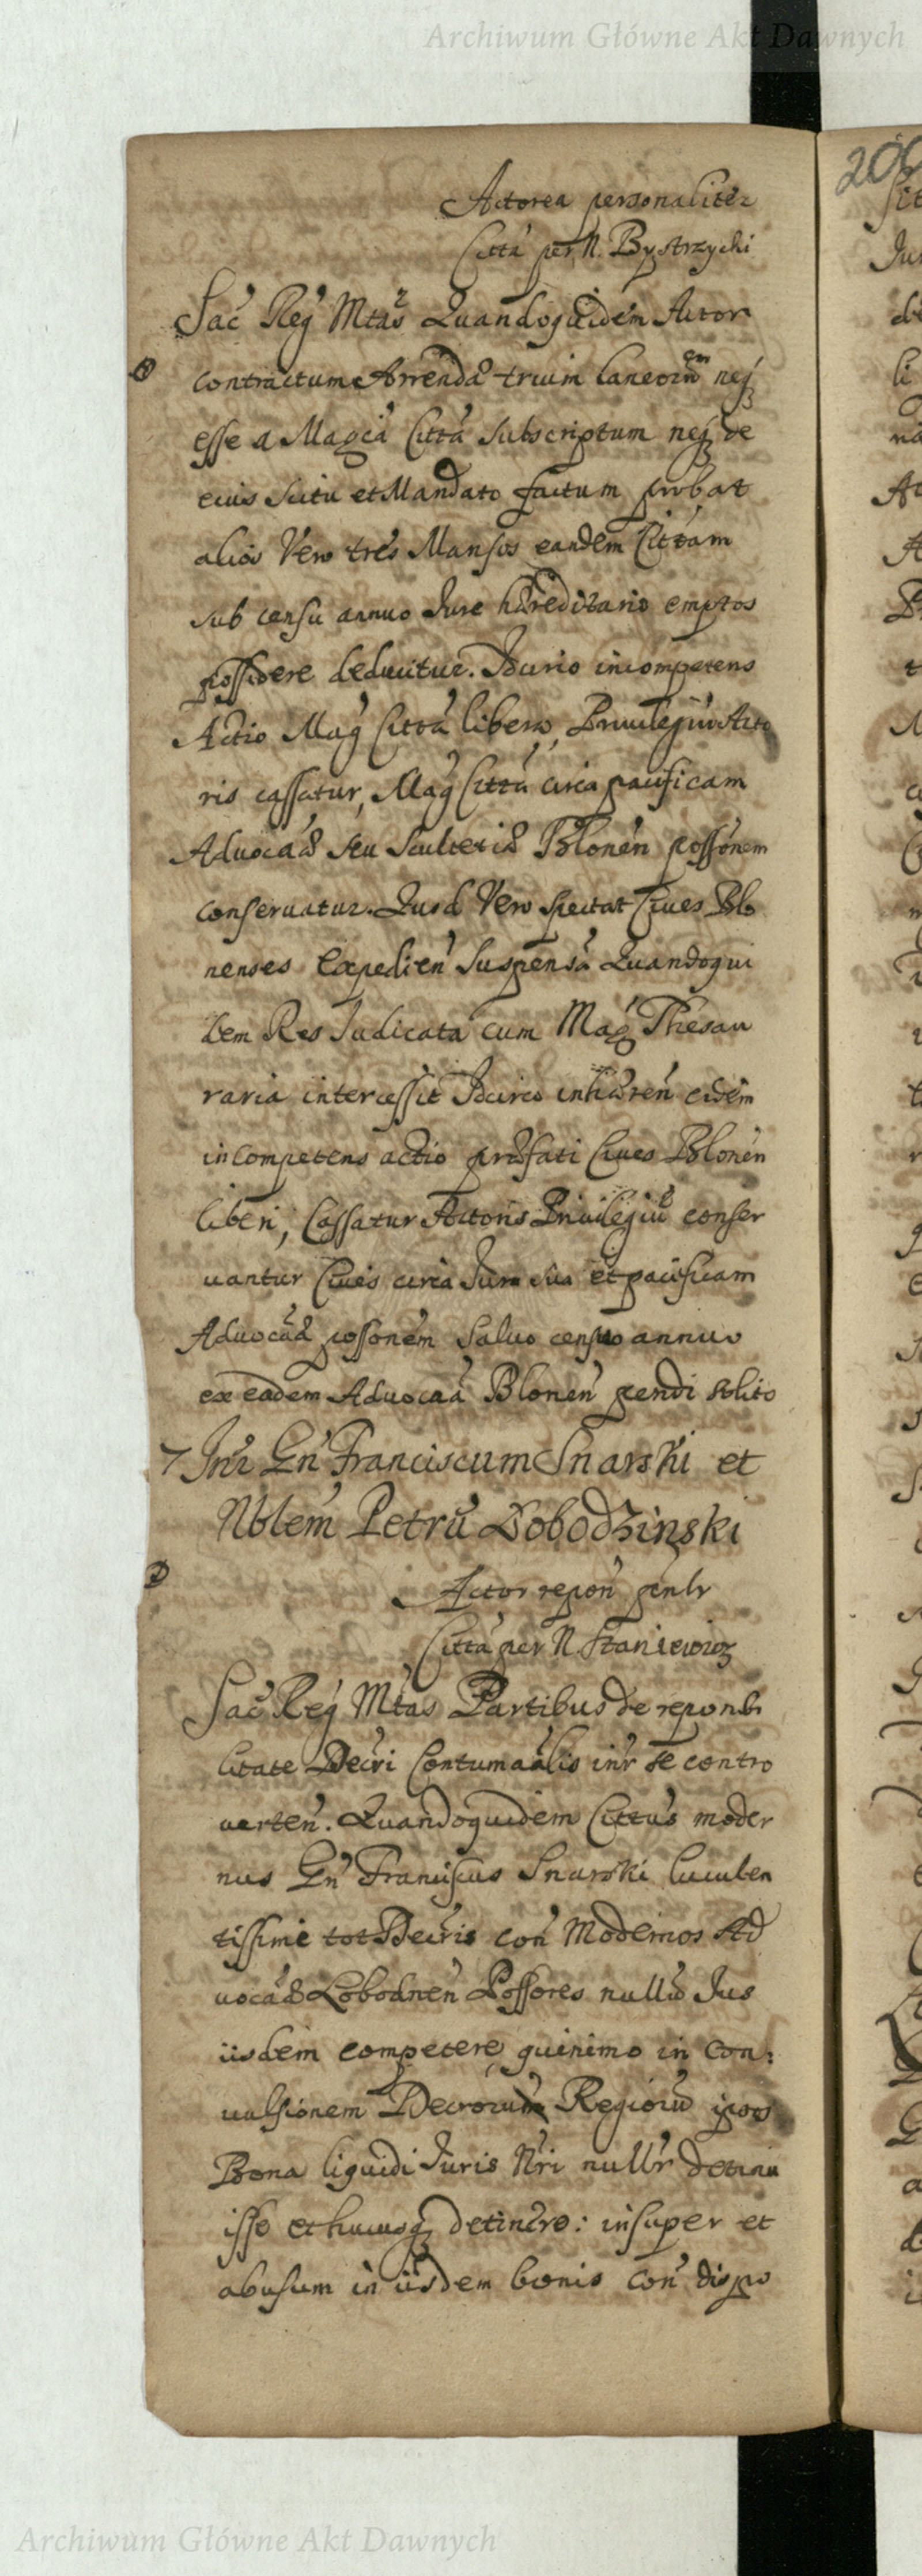 Archiwum Główne Akt Dawnych
200
Actorea personaliter
Citta per N. Bystrzycki
Sac Reg Mtas Quandoquidem Actor
contractum Arrendae trium laneorum neq
esse a Magca Citta subscriptum neq de
eius scitu et Mandato factum probat
alios Vero tres Mansos eandem Cittam
sub censu annuo Jure haereditario emptos
possidere deducitur. Idcirco incompetens
Actio Mag Citta libera, Privilegium Acto
ris cassatur, Mag Citta circa pacificam
Advocae seu Scultetiae Blonen possonem
conservatur. Quod Vero spectat Cives Blo
nenses Expedien Suspensa Quandoqui
dem Res Judicata cum Mag Thesau
raria intercessit Idcirco inhaeren eidem
incompetens actio praefati Cives Blonen
liberi, Cassatur Actoris Privilegiu conser
vantur Cives circa Jura sua et pacificam
Advocae possonem Salvo censu annuo
ex eadem Advocaa Blonen pendi solito
Inr Gn Franciscum Snarski et
Nblem Petru Dobodzinski
Actor repon pnlr
Citta per N. Staniewicz
Sac Reg Mtas Partibus de reponibi
litate Decri Contumacialis inr se contro
verten. Quandoquidem Cittus moder
nus Gn Franciscus Snarski luculen
tissime tot Decris con Modernos Ad
vocae Lobodnen Possores nullu Jus
iisdem competere quinimo in Con:
vulsionem Decrorum Regioru ipsos
Bona liquidi Juris Nri nullr detinu
isse et hucusq detinere: insuper et
abusum in iisdem bonis con dispo
Archiwum Główne Akt Dawnych